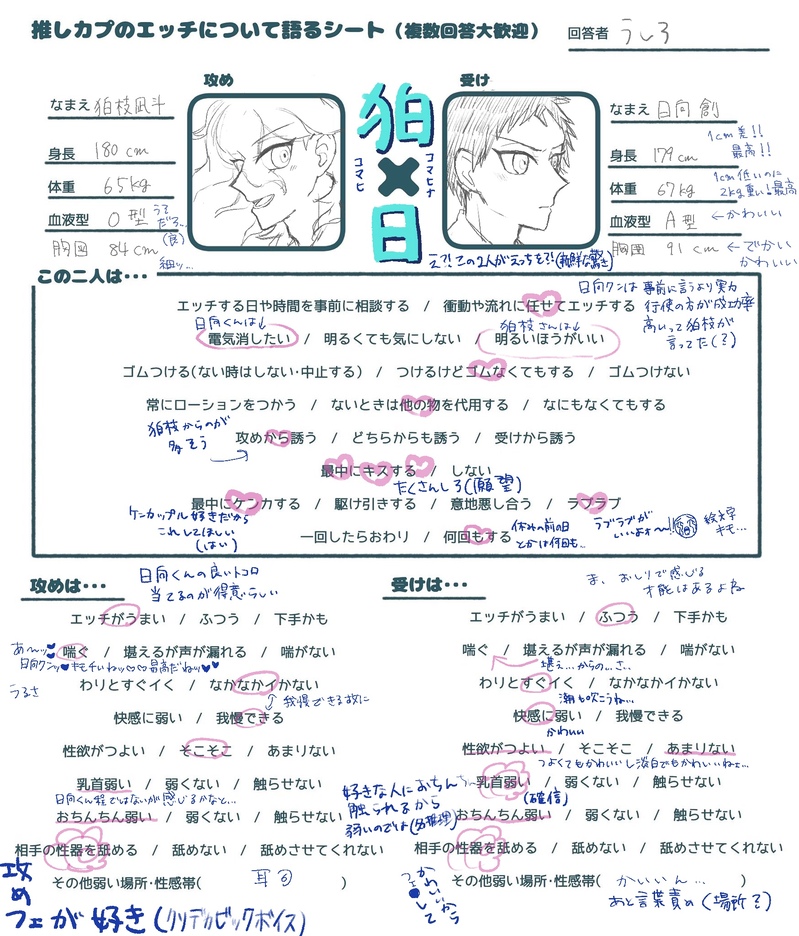 推しカプのエッチについて語るシート(複数回答大歓迎)
回答者 うしろ
攻め
受け
なまえ 狛枝凪斗
身長 180cm
体重 65kg
血液型 O型
胸囲 84cm
細ッ…
狛×日
コマヒナ
なまえ 日向創
1cm差!!
最高!!
身長 179cm
体重 67kg
1cm低いのに
2kg重い最高
血液型 A型 ←かわいい
胸囲 91cm ←でかい
かわいい
え?!この2人がえっちを?!(新鮮な驚き)
この二人は・・・
エッチする日や時間を事前に相談する / 衝動や流れに任せてエッチする
日向クンは事前に言うより実力
行使の方が成功率
高いって狛枝が
言ってた(?)
日向くんは↓
狛枝さんは↓
電気消したい / 明るくても気にしない / 明るいほうがいい
ゴムつける(ない時はしない・中止する) / つけるけどゴムなくてもする / ゴムつけない
常にローションをつかう / ないときは他の物を代用する / なにもなくてもする
狛枝からのが
多そう
攻めから誘う / どちらからも誘う / 受けから誘う
最中にキスする / しない
たくさんしろ(願望)
最中にケンカする / 駆け引きする / 意地悪し合う / ラブラブ
ケンカップル好きだから
これしてほしい
(はい)
一回したらおわり / 何回もする
休みの前の日
とかは何回も…
ラブラブが
いいよォ〜〜!
絵文字
キモ…
攻めは・・・
日向くんの良いトコロ
当てるのが得意らしい
エッチがうまい / ふつう / 下手かも
喘ぐ / 堪えるが声が漏れる / 喘がない
あ〜ッ♥
日向クンッ♥キモチいねッ♡♡最高だねッ♥♥
うるさ
わりとすぐイく / なかなかイかない
我慢できる故に
快感に弱い / 我慢できる
性欲がつよい / そこそこ / あまりない
乳首弱い / 弱くない / 触らせない
日向くん程ではないが感じるかなと…
おちんちん弱い / 弱くない / 触らせない
相手の性器を舐める / 舐めない / 舐めさせてくれない
その他弱い場所・性感帯( 耳 )
攻め
フェが好き(クソデカビックボイス)
受けは・・・
ま、おしりで感じる
才能はあるよね
エッチがうまい / ふつう / 下手かも
喘ぐ / 堪えるが声が漏れる / 喘がない
堪え…からの…さ…
わりとすぐイく / なかなかイかない
潮も吹こうね…
快感に弱い / 我慢できる
かわいい
性欲がつよい / そこそこ / あまりない
つよくてもかわいいし淡白でもかわいいねェ…
乳首弱い / 弱くない / 触らせない
(確信)
好きな人におちんちん
触られるから
弱いのでは(名推理)
おちんちん弱い / 弱くない / 触らせない
相手の性器を舐める / 舐めない / 舐めさせてくれない
かわいいから
フェ●して
その他弱い場所・性感帯( かいいん… )
あと言葉責め(場所?)